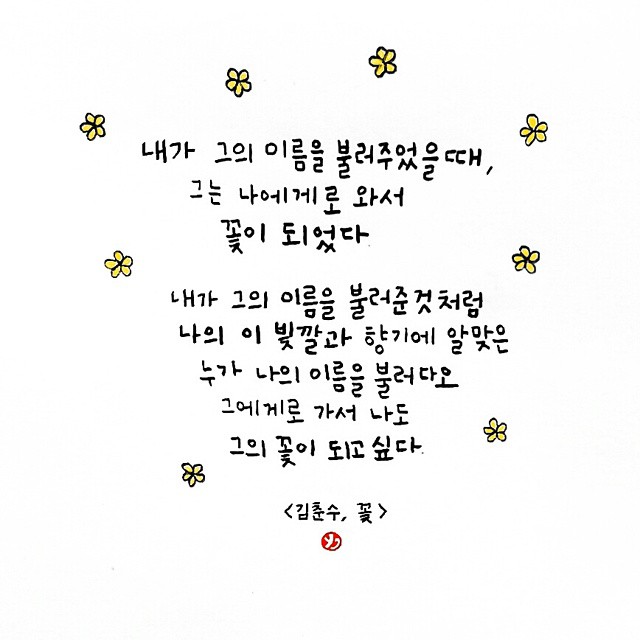 내가 그의 이름을 불러주었을때,
그는 나에게로 와서
꽃이 되었다.
내가 그의 이름을 불러준것처럼
나의 이 빛깔과 향기에 알맞은
누가 나의 이름을 불러다오
그에게로 가서 나도
그의 꽃이 되고싶다.
<김춘수, 꽃>